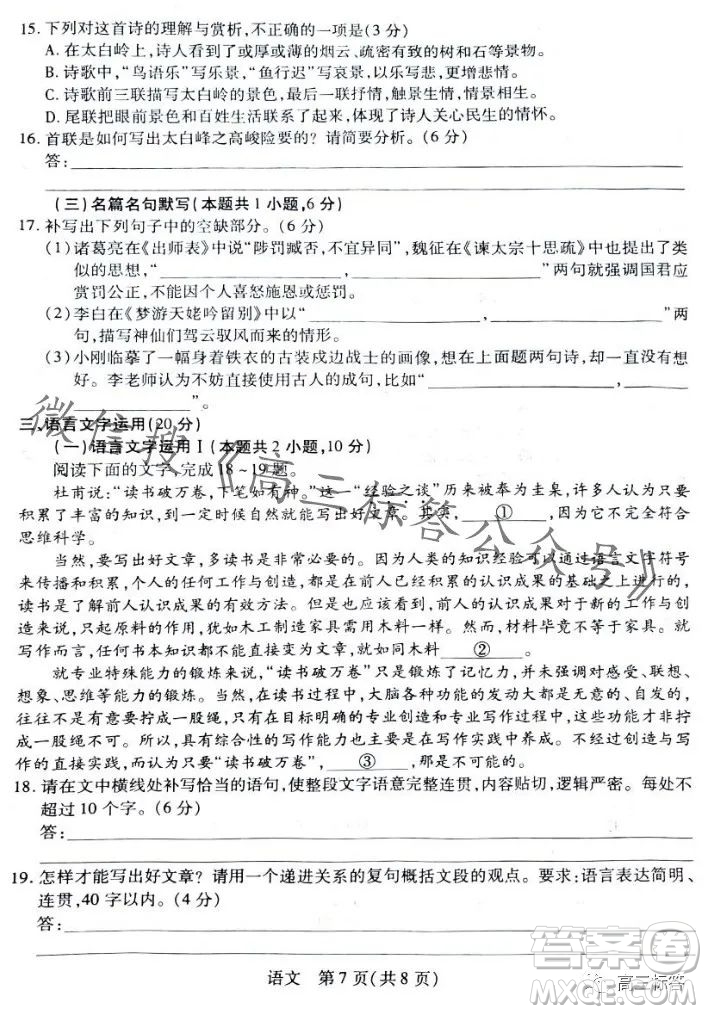 15. 下列对这首诗的理解与赏析,不正确的一项是(3 分)
A. 在太白岭上,诗人看到了或厚或薄的烟云、疏密有致的树和石等景物。
B. 诗歌中,“鸟语乐”写乐景,“鱼行迟”写哀景,以乐写悲,更增悲情。
C. 诗歌前三联描写太白岭的景色,最后一联抒情,触景生情、情景交融。
D. 尾联把眼前景色和百姓生活联系了起来,体现了诗人关心民生的情怀。
16. 首联是如何写出太白峰之高峻险要的? 请简要分析。(6 分)
答:
(三)名篇名句默写(本题共 1 小题,6 分)
17. 补写出下列句子中的空缺部分。(6 分)
(1)诸葛亮在《出师表》中说“陟罚臧否,不宜异同”,魏征在《谏太宗十思疏》中也提出了类
似的思想,“____,____”两句就强调国君应
赏罚公正,不能因个人喜怒施恩或惩罚。
(2)李白在《梦游天姥吟留别》中以“____,____”两
句,描写神仙们驾云驭风而来的情形。
(3)小刚临摹了一幅身着铁衣的古装戍边战士的画像,想在上面题两句诗,以增加画的意
趣。李老师认为不妨直接使用古人的成句,比如“____,
____”。
三、语言文字运用(20 分)
(一)语言文字运用Ⅰ(本题共 2 小题,10 分)
阅读下面的文字,完成 18~19 题。
杜甫说:“读书破万卷,下笔如有神。”这一“经验之谈”历来被奉为圭臬,许多人认为只要
积累了丰富的知识,到一定时候自然就能写出好文章。其实,__①__,因为它不完全符合
思维科学。
当然,要写出好文章,多读书是非常必要的。因为人类的知识经验可以通过语言文字符号
来传播和积累,个人的任何工作与创造,都是在前人已获得的认识成果的基础上进行的,
读书是了解前人认识成果的有效方法。但是也应该看到,前人的认识成果对于新的工作与创
造来说,只起原料的作用,犹如木工制造家具需用木料一样。然而,材料毕竟不等于家具。就
写作而言,任何书本知识都不能直接变为文章,就如同木料__②__。
就专业特殊能力的锻炼来说,“读书破万卷”只是锻炼了记忆力,并未强调对感受、联想、
想象、思维等能力的锻炼。在读书过程中,大脑各种功能的发动大都是无意的、自发的,
往往不是有意要拧成一股绳,只有在目标明确的专业创造和专业写作过程中,这些功能才非
拧成一股绳不可。所以,具有综合性的写作能力也只有在创作实践中养成。又因为缺乏写
作的实践,而只要求“读书破万卷”,__③__。
18. 请在文中横线处补写恰当的语句,使整段文字语意完整连贯,内容贴切,逻辑严密。每处不
超过 10 个字。(6 分)
答:
19. 怎样才能写出好文章? 请用一个递进关系的复句概括文段的观点。要求:语言表达简明、
连贯,40 字以内。(4 分)
答:
语文 第 7 页(共 8 页)
微信搜《高三标答公众号》
答案圈
MXQE.COM
高三标答